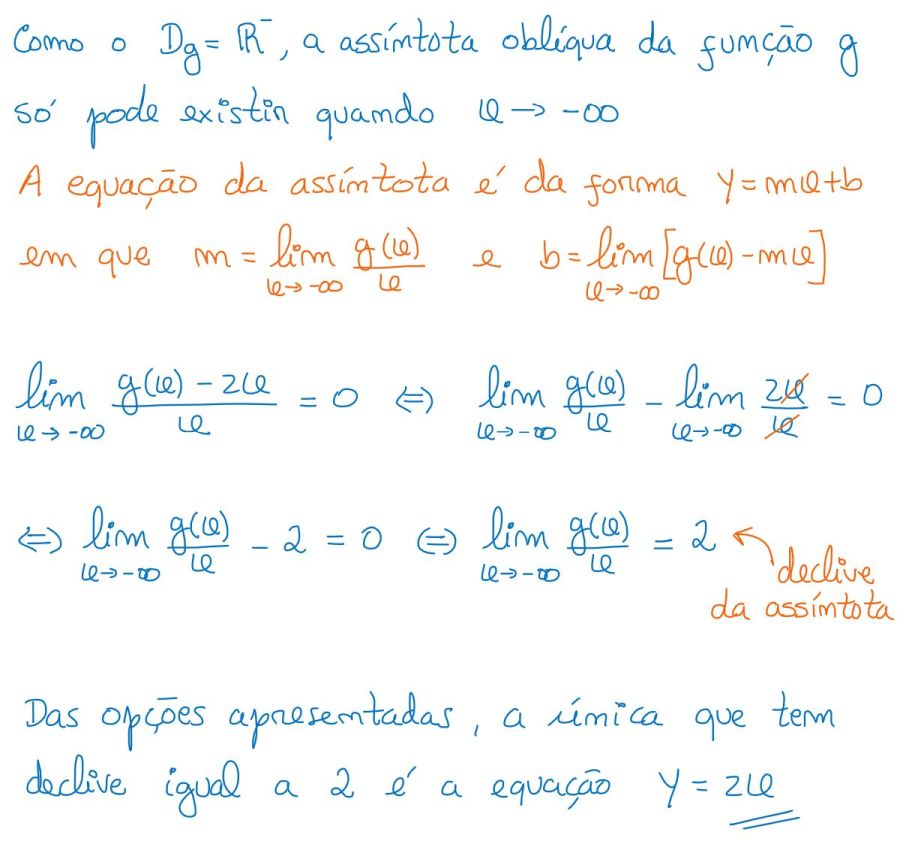 Como o Dg = ℝ⁻, a assíntota oblíqua da função g
só pode existir quando x → -∞
A equação da assíntota é da forma y = mx+b
em que m = lim x→-∞ g(x)/x e b = lim x→-∞ [g(x) - mx]
lim x→-∞ (g(x) - 2x)/x = 0 ⇔ lim x→-∞ g(x)/x - lim x→-∞ 2x/x = 0
⇔ lim x→-∞ g(x)/x - 2 = 0 ⇔ lim x→-∞ g(x)/x = 2
declive
da assíntota
Das opções apresentadas, a única que tem
declive igual a 2 é a equação y = 2x